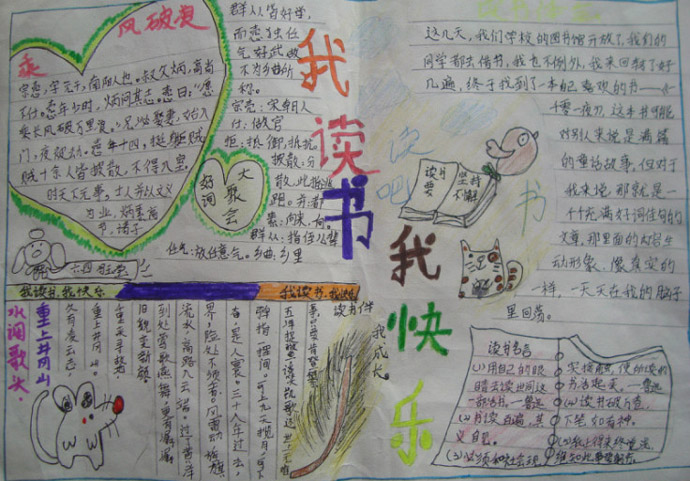 乘
风破浪
宗悫,字元干,南阳人也。叔父炳,高尚
不仕。悫年少时,炳问其志,悫曰:“愿
乘长风破万里浪。”兄泌娶妻,始入
门,夜被劫。悫年十四,挺身拒贼
贼十余人皆披散,不得入室。
时天下无事,士人并以文义
为业,炳素高
节,诸子
群从皆好学,
而悫独任
气好武,故
不为乡曲所
称。
宗悫:宋朝人
仕:做官
拒:抵御,抵抗
披散:分
素:向来
群从:指侄儿辈
任气:放任意气。乡曲:乡里
好词
大聚会
我读书
我快乐
我读书,我快乐
我读书,我快乐
水调歌头
重上井冈山
久有凌云志,
重上井冈山。
千里来寻故地,
旧貌变新颜。
到处莺歌燕舞,更有潺潺
流水,高路入云端。过了黄洋
界,险处不须看。风雷动,旌旗
奋,是人寰。三十八年过去,
弹指一挥间。可上九天揽月,可下
五洋捉鳖,谈笑凯歌还。世上无难
事,只要肯登攀。
读书伴
我成长。
读书
要
坚持
不懈
这几天,我们学校的图书馆开放了,我们的
同学都去借书,我也不例外,我来回转了好
几遍,终于找到了一本自己喜欢的书——《一
千零一夜》,这本书可能
对别人来说是满篇
的童话故事,但对于
我来说那就是一
个充满好词佳句的
文章,那里面的内容生
动形象,像真实的
一样,一天天在我的脑子
里回荡。
读书名言
(1)用自己的眼
睛去读世间这
一部活书。—鲁迅
(2)书读百遍,其
义自见。
(3)必须和社会现
实接触,使所读的
书活起来。—鲁迅
(4)读书破万卷,
下笔如有神。